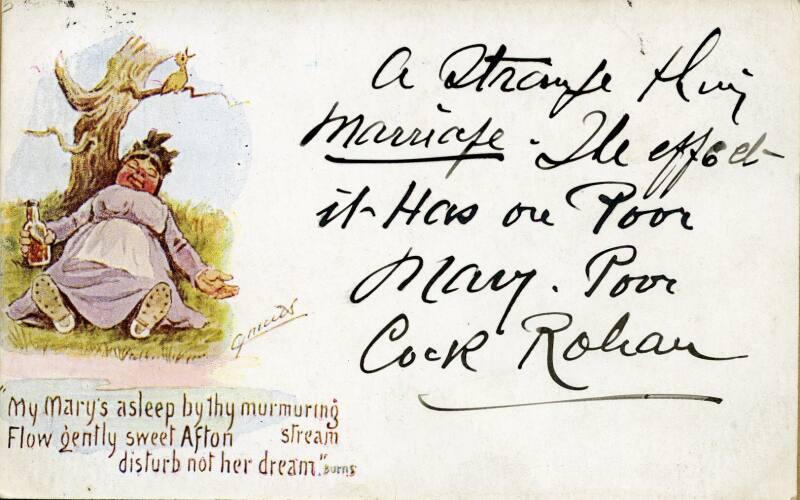 A Strange thing
Marriage - The effect
it Has on Poor
Mary. Poor
Cock Rohan
"My Mary's asleep by thy murmuring
stream
Flow gently sweet Afton
disturb not her dream." Burns